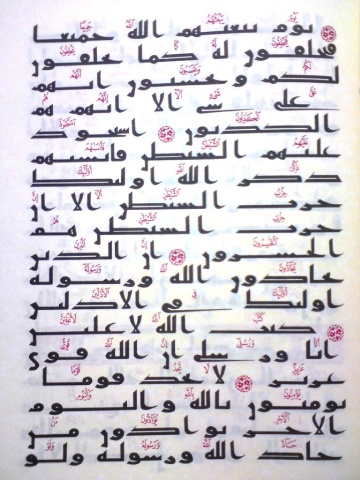 يوم يبعثهم الله جميعا
فيحلفون له كما يحلفون
لكم ويحسبون انهم
على شى الا انهم هم
الكذبون استحوذ
عليهم الشيطن فانسيهم
ذكر الله اولئك
حزب الشيطن الا ان
حزب الشيطن هم
الخسرون ان الذين
يحادون الله ورسوله
اولئك فى الاذلين
كتب الله لاغلبن
انا ورسلى ان الله قوى
عزيز لا تجد قوما
يومنون بالله واليوم
الاخر يوادون من
حاد الله ورسوله ولو